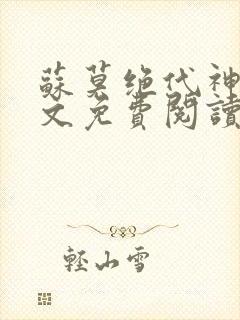 蘇莫绝代神
文免費閱讀
輕山雪